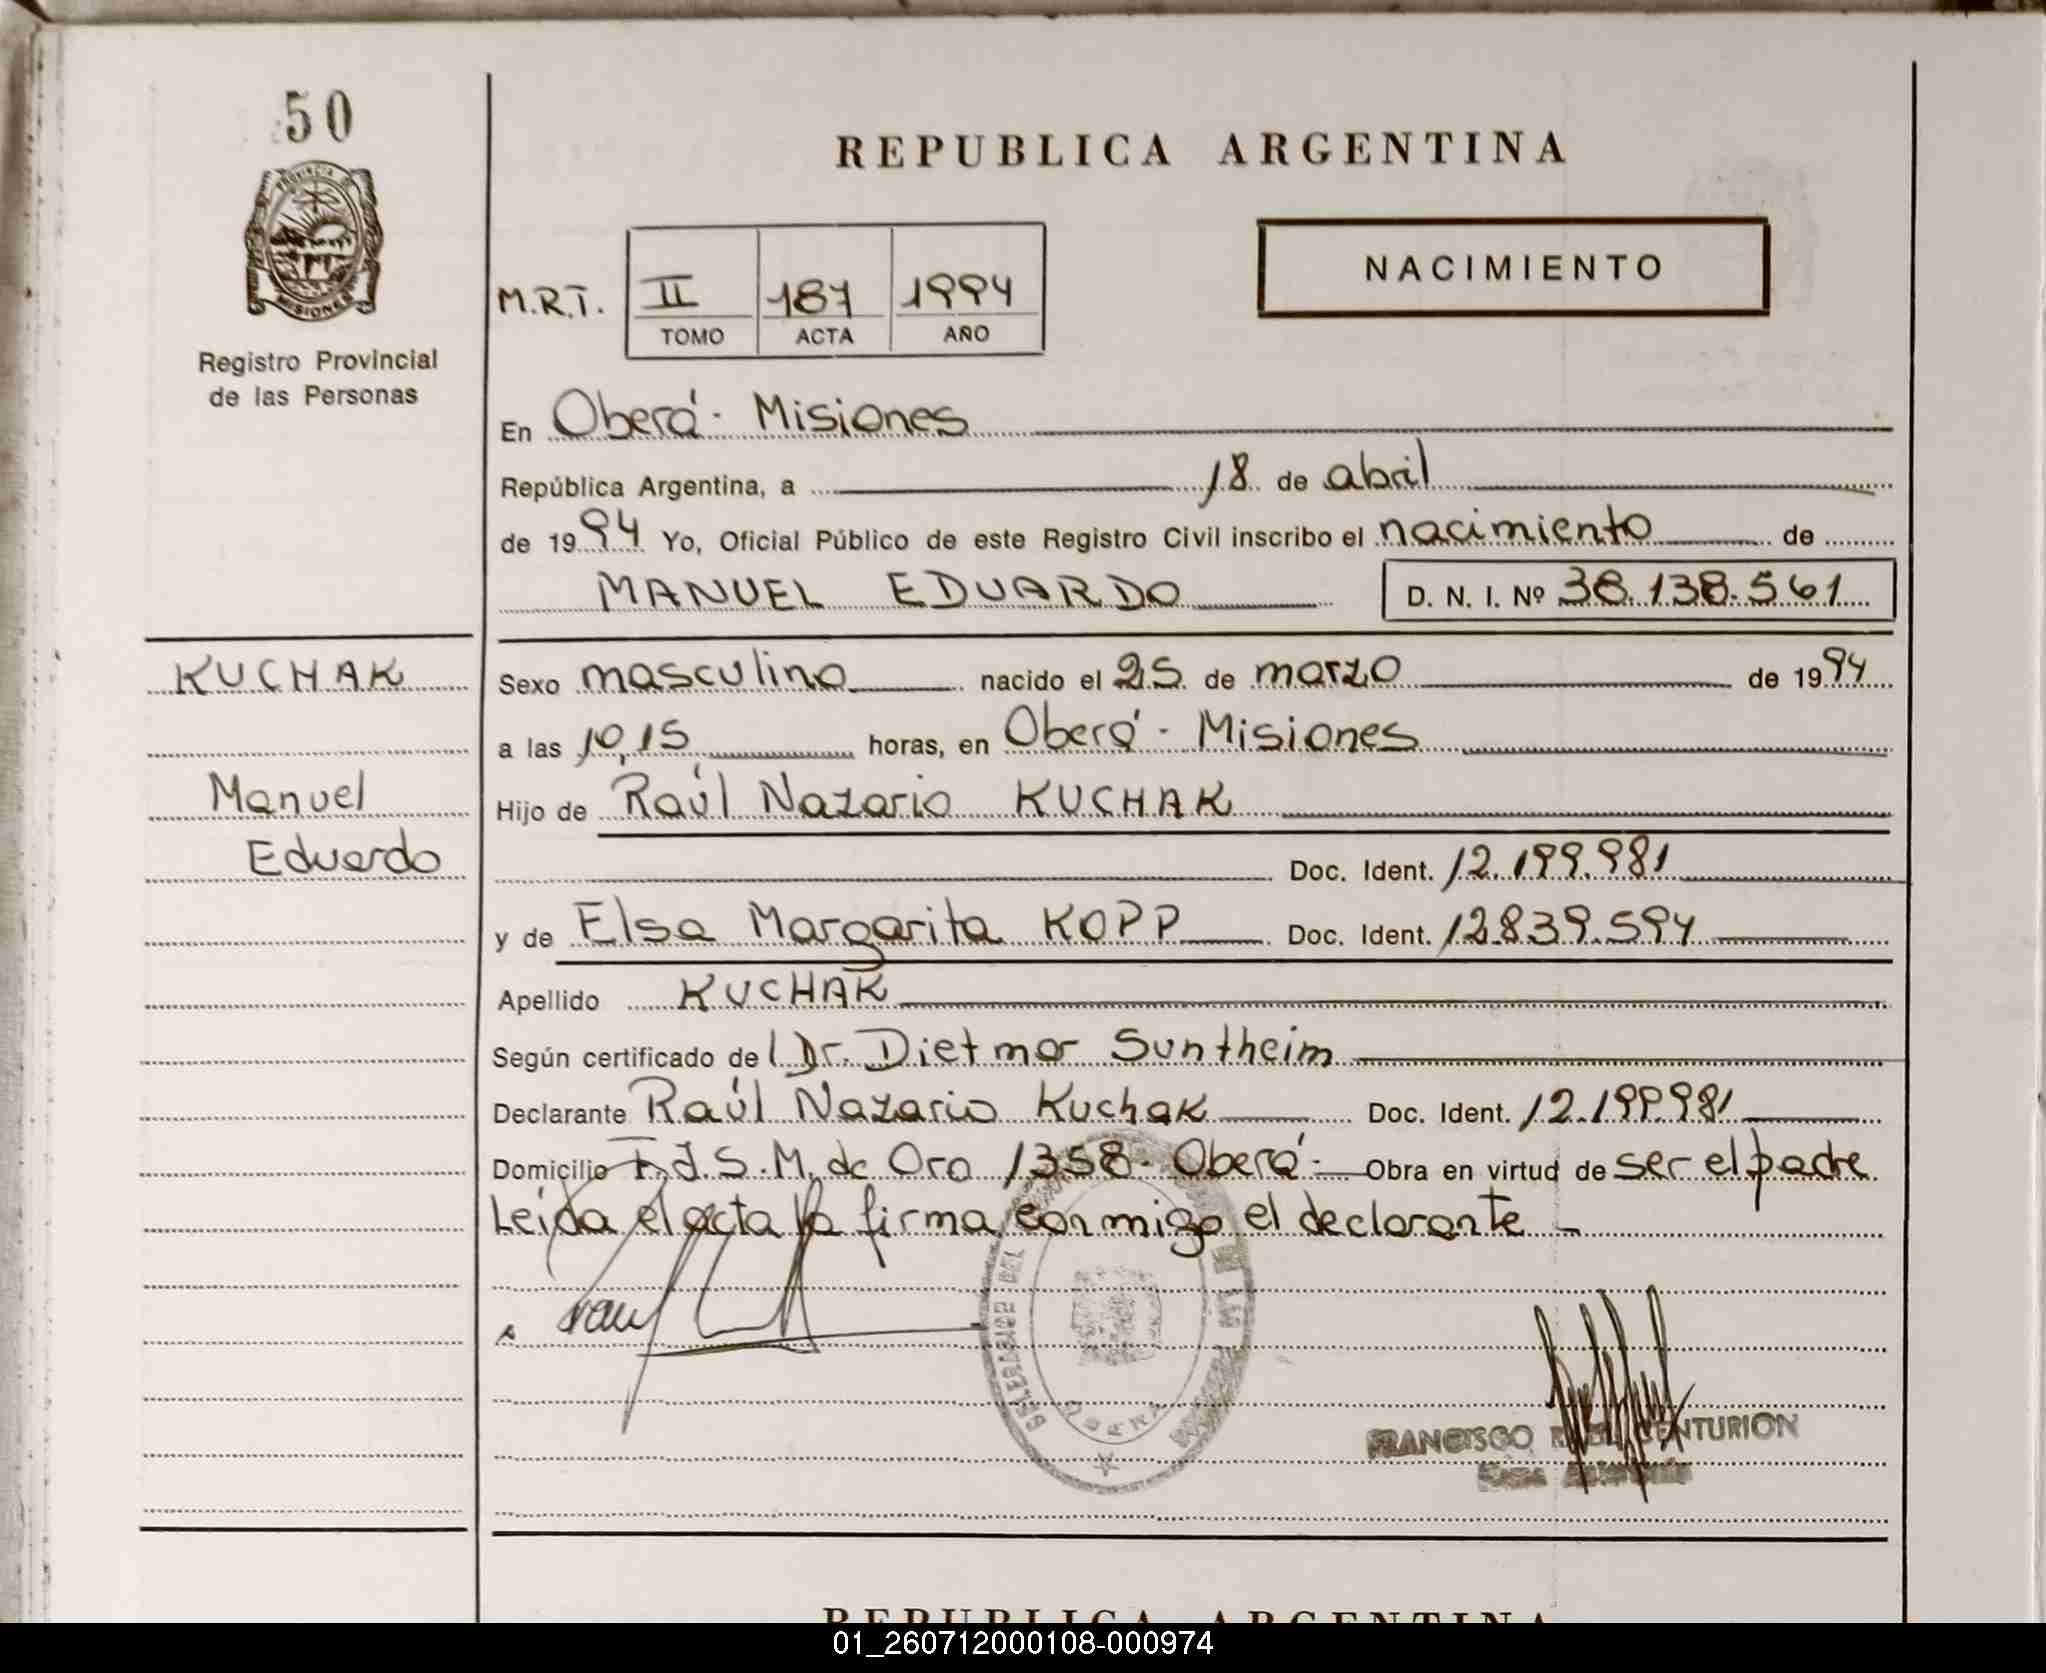 50
REPUBLICA ARGENTINA
PROVINCIA DE
MISIONES
Registro Provincial
de las Personas
NACIMIENTO
M.R.T. II 187 1994
TOMO ACTA AÑO
En Oberá - Misiones
República Argentina, a 18 de abril
de 1994 Yo, Oficial Público de este Registro Civil inscribo el nacimiento de
MANUEL EDUARDO D. N. I. Nº 38.138.561
KUCHAK
Manuel
Eduardo
Sexo masculino nacido el 25 de marzo de 1994
a las 10,15 horas, en Oberá - Misiones
Hijo de Raúl Nazario KUCHAK
Doc. Ident. 12.199.981
y de Elsa Margarita KOPP Doc. Ident. 12.839.594
Apellido KUCHAK
Según certificado de l Dr. Dietmar Suntheim
Declarante Raúl Nazario Kuchak Doc. Ident. 12.199.981
Domicilio F.J.S.M. de Oro 1358 - Oberá - Obra en virtud de ser el padre
Leída el acta la firma conmigo el declarante -
DEL
OBERA
FRANCISCO CENTURION
REPUBLICA ARGENTINA
01_260712000108-000974